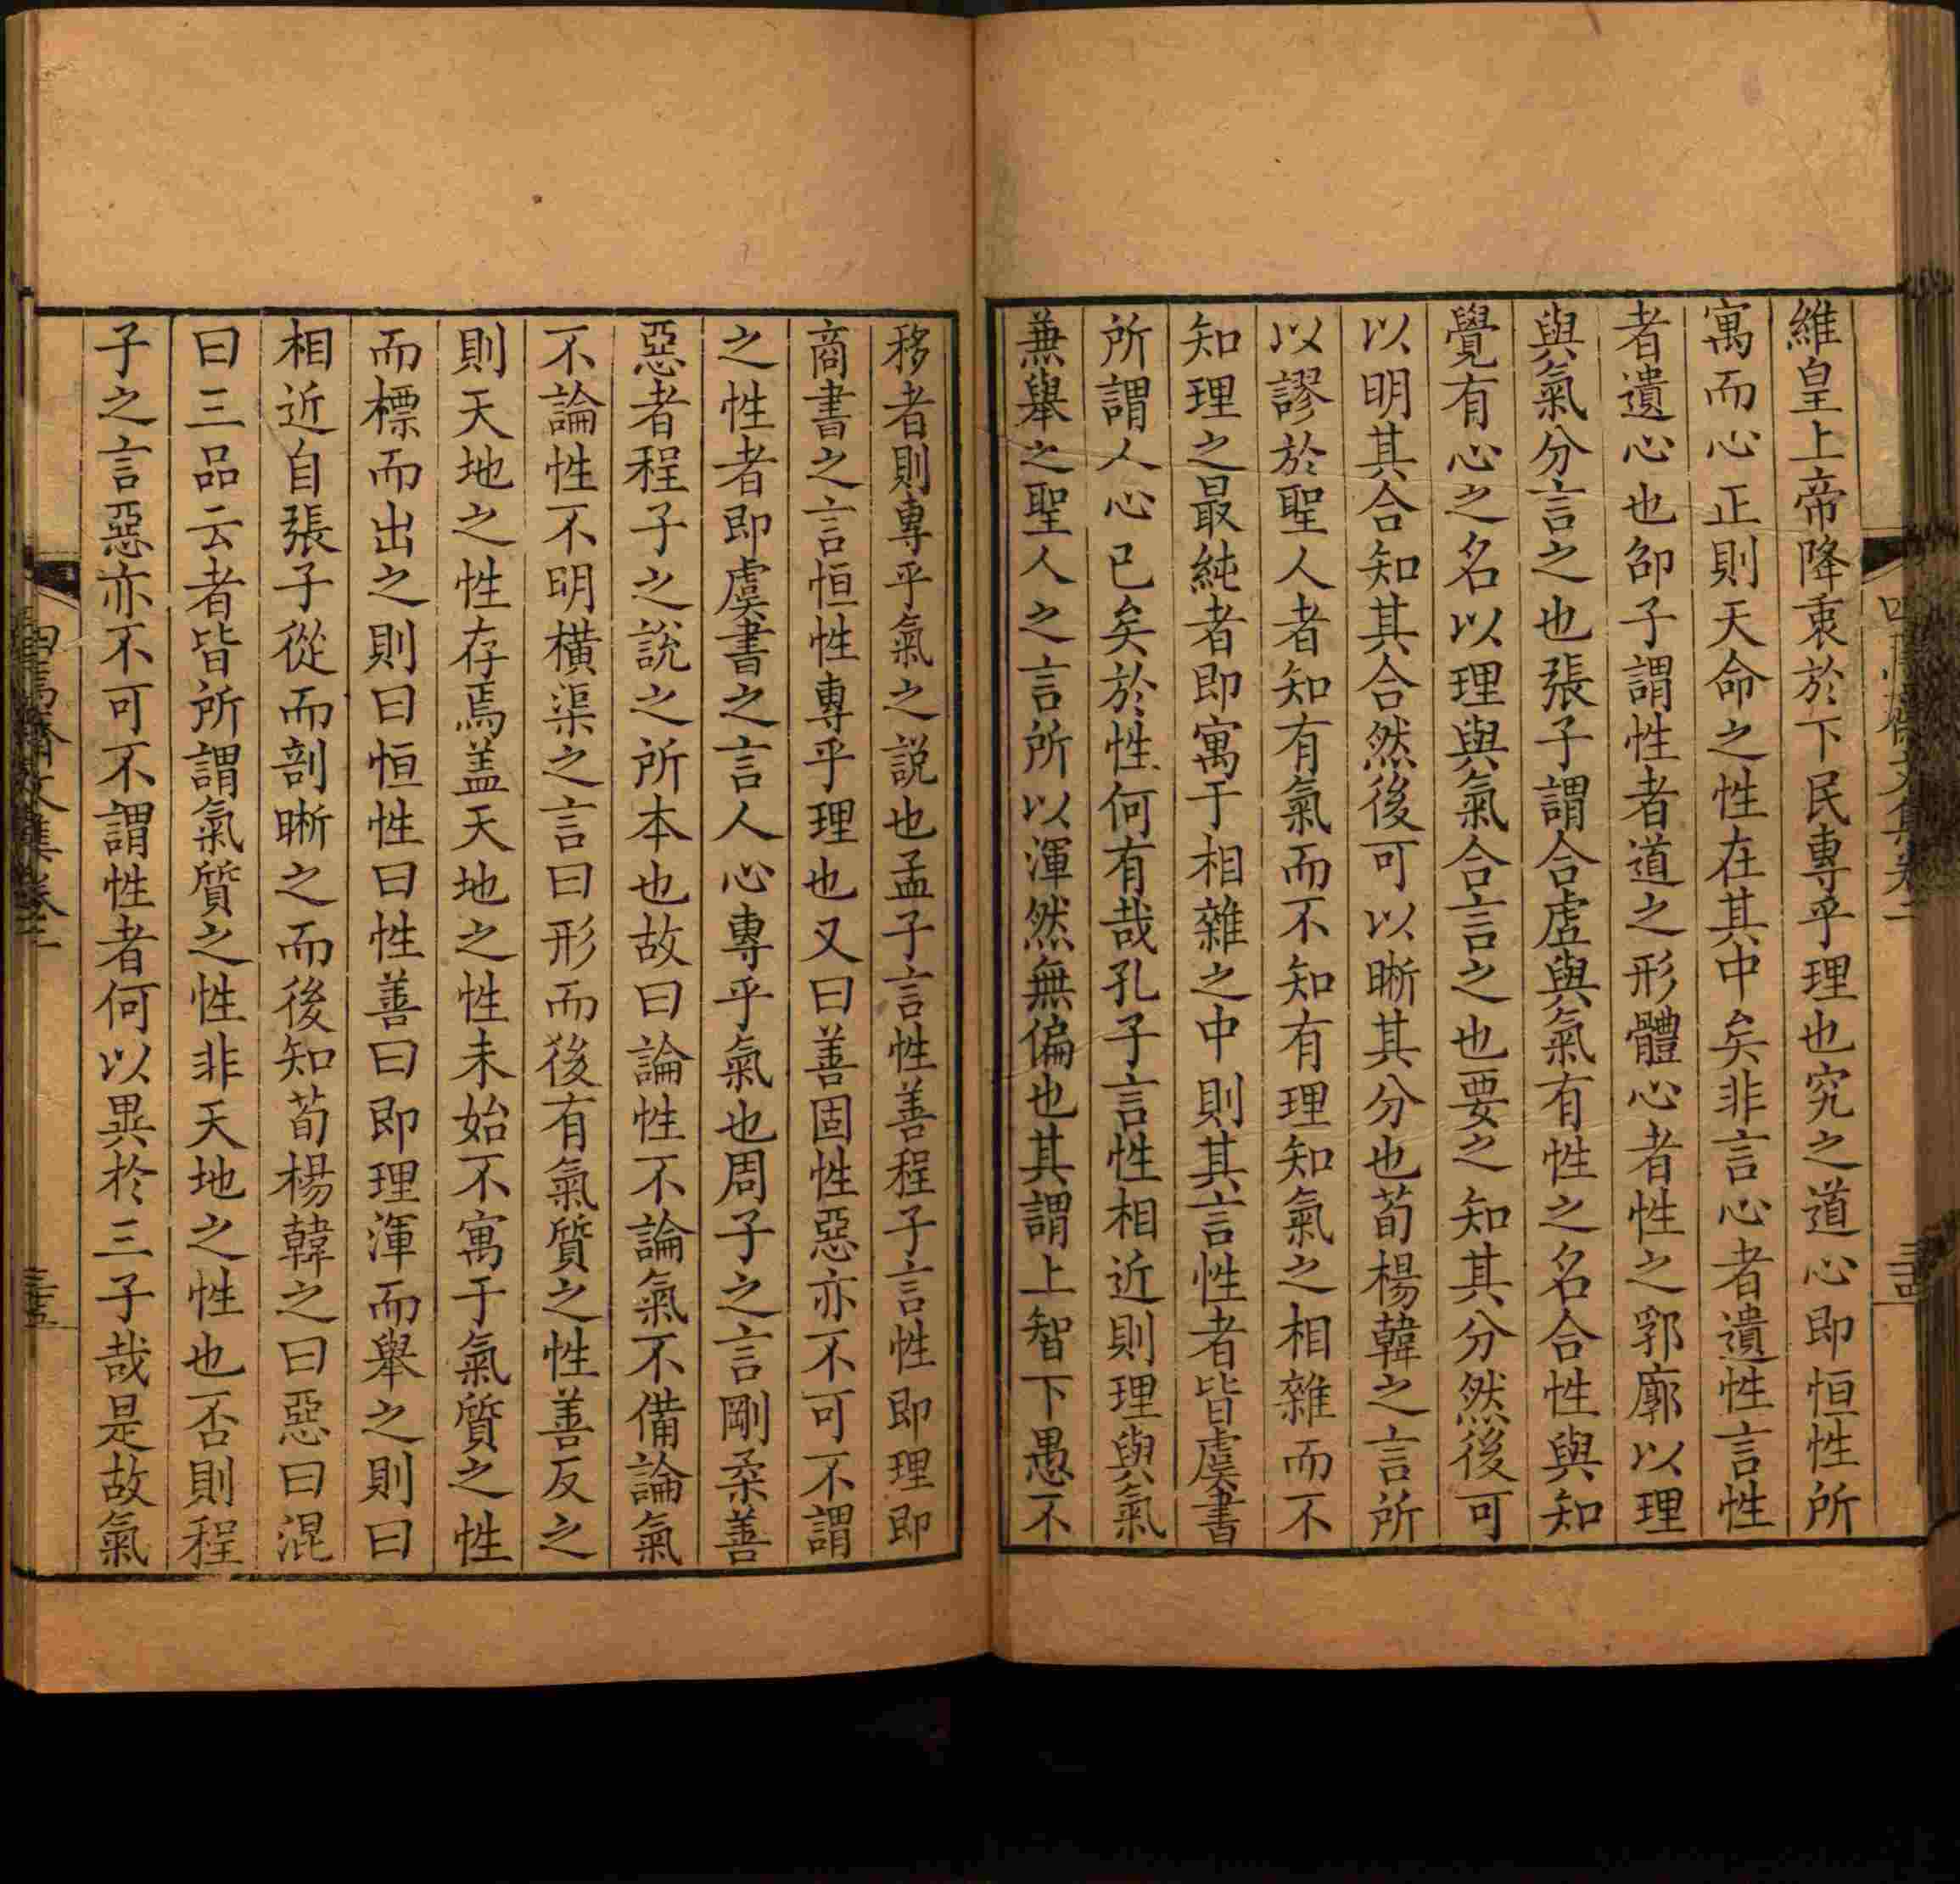 維皇上帝降衷於下民專乎理也究之道心即恒性所
寓而心正則天命之性在其中矣非言心者遺性言性
者遺心也邵子謂性者道之形體心者性之郛廓以理
與氣分言之也張子謂合虛與氣有性之名合性與知
覺有心之名以理與氣合言之也要之知其分然後可
以明其合知其合然後可以晰其分也荀楊韓之言所
以謬於聖人者知有氣而不知有理知氣之相雜而不
知理之最純者即寓于相雜之中則其言性者皆虞書
所謂人心已矣於性何有哉孔子言性相近則理與氣
兼舉之聖人之言所以渾然無偏也其謂上智下愚不
移者則專乎氣之說也孟子言性善程子言性即理即
商書之言恒性專乎理也又曰善固性惡亦不可不謂
之性者即虞書之言人心專乎氣也周子之言剛柔善
惡者程子之說之所本也故曰論性不論氣不備論氣
不論性不明橫渠之言曰形而後有氣質之性善反之
則天地之性存焉盖天地之性未始不寓于氣質之性
而標而出之則曰恒性曰性善曰即理渾而舉之則曰
相近自張子從而剖晰之而後知荀楊韓之曰惡曰混
曰三品云者皆所謂氣質之性非天地之性也否則程
子之言惡亦不可不謂性者何以異於三子哉是故氣